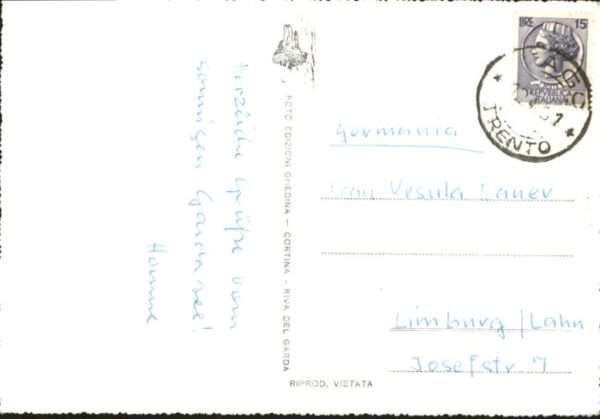 Herzliche Grüße vom
sonnigen Gardasee!
Hanne
FOTO EDIZIONI GHEDINA - CORTINA - RIVA DEL GARDA
RIPROD. VIETATA
LIRE 15
REPUBBLICA
ITALIANA
TRENTO
Germania
Frau Ursula Lauer
Limburg/Lahn
Josefstr. 7